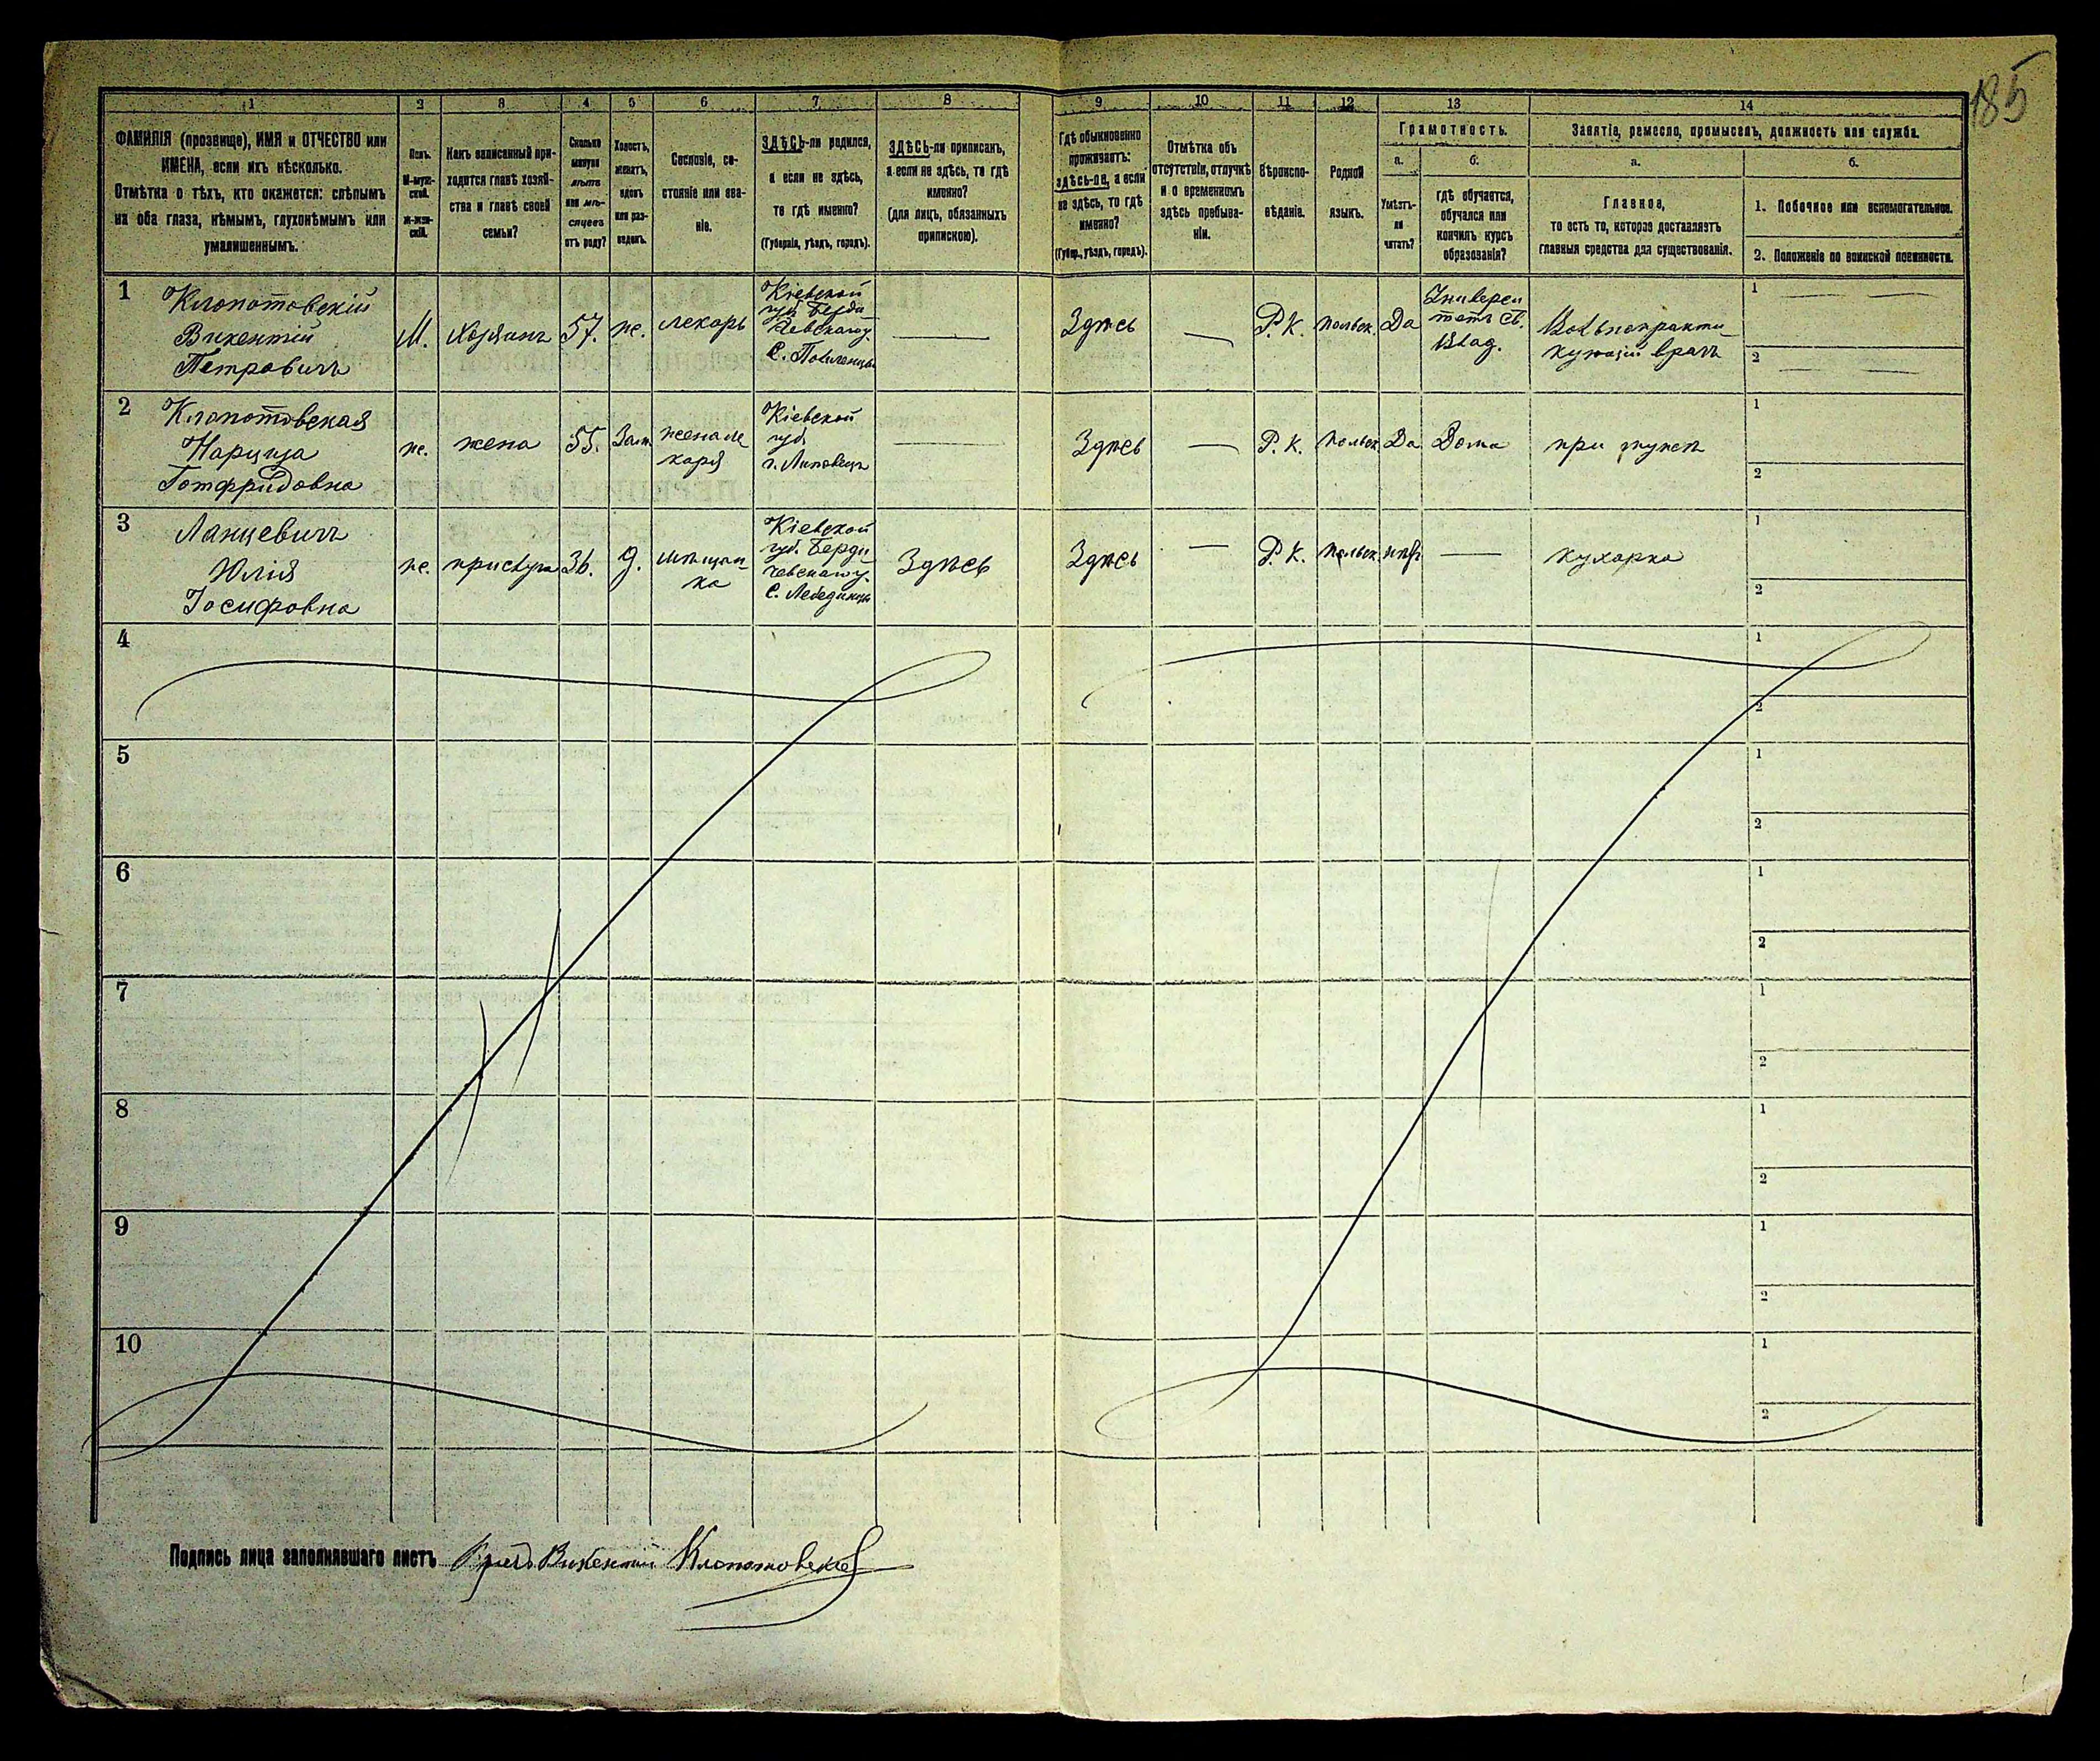 185
1 2 3 4 5 6 7 8 9 10 11 12 13 14
ФАМИЛІЯ (прозвище), ИМЯ и ОТЧЕСТВО или
ИМЕНА, если ихъ нѣсколько.
Отмѣтка о тѣхъ, кто окажется: слѣпымъ
на оба глаза, нѣмымъ, глухонѣмымъ или
умалишеннымъ.
Полъ.
М-муж-
ской.
Ж-жен-
скій.
Какъ записанный при-
ходится главѣ хозяй-
ства и главѣ своей
семьи?
Сколько
минуло
лѣтъ
или мѣ-
сяцевъ
отъ роду?
Холостъ,
женатъ,
вдовъ
или раз-
веденъ.
Сословіе, со-
стояніе или зва-
ніе.
ЗДѢСЬ-ли родился,
а если не здѣсь,
то гдѣ именно?
(Губернія, уѣздъ, городъ).
ЗДѢСЬ-ли приписанъ,
а если не здѣсь, то гдѣ
именно?
(для лицъ, обязанныхъ
припискою).
Гдѣ обыкновенно
проживаетъ:
здѣсь-ли, а если
не здѣсь, то гдѣ
именно?
(Губер., уѣздъ, городъ).
Отмѣтка объ
отсутствіи, отлучкѣ
и о временномъ
здѣсь пребыва-
ніи.
Вѣроиспо-
вѣданіе.
Родной
языкъ.
Грамотность.
а.
Умѣетъ-
ли
читать?
б.
гдѣ обучается,
обучался или
кончилъ курсъ
образованія?
Занятіе, ремесло, промыселъ, должность или служба.
а.
Главное,
то есть то, которое доставляетъ
главныя средства для существованія.
б.
1. Побочное или вспомогательное.
2. Положеніе по воинской повинности.
1
Клопотовскій
Викентій
Петровичъ
М.
Хозяинъ
57.
ж.
лекарь
Кіевской
губ. Берди-
чевскаго у.
С.
Здѣсь
Р. К.
польск.
Да
Университетъ Св.
Влад.
Вольнопракти-
кующій врачъ
1
2
2
Клопотовская
Нарциза
Готфридовна
ж.
жена
55.
Зам.
жена ле
каря
Кіевской
губ.
г. Липовецъ
Здѣсь
Р. К.
польск.
Да
Дома
при мужѣ
1
2
3
Ланцевичъ
Юлія
Іосифовна
ж.
прислуга
36.
д.
мѣщан-
ка
Кіевской
губ. Берди-
чевскаго у.
С. Лебединцы
Здѣсь
Здѣсь
Р. К.
польск.
нѣтъ
кухарка
1
2
4
1
2
5
1
2
6
1
2
7
1
2
8
1
2
9
1
2
10
1
2
Подпись лица заполнявшаго листъ Викентій Клопотовскій